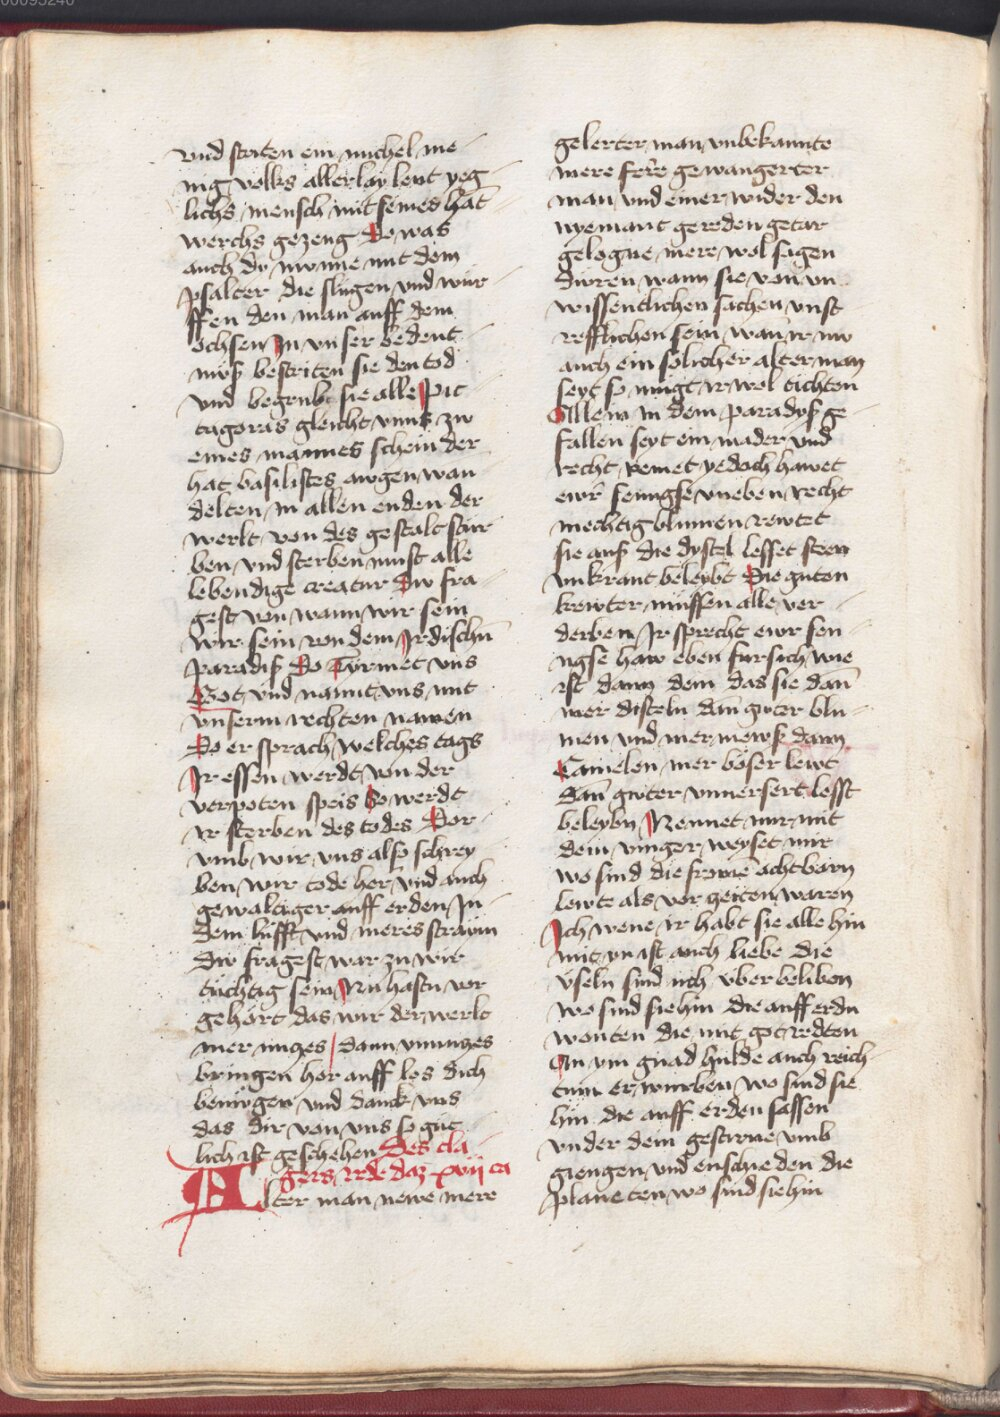 00095240
vnd striten ein michel me
nig volks allerlay leut yeg
lichs mensch mit seines hāt
werchs gezeug Do was
auch dy nunne mit dem
psalter die slugen vnd wur
ffen den man auff dem
ochsen In vnser bedeut
nuß bestriten sie den tod
vnd begrubt sie alle Pic
tagoras gleicht vnns zu
eines mannes schein der
hat basiliskes augen wan
delten in allen enden der
werlt von des gestalt stur
ben vnd sterben must alle
lebendige creatur Du fra
gest von wann wir sein
wir sein von dem Irdischn
paradiß Do Tyrmet vns
Got vnd nannt vns mit
vnserm rechten namen
Do er sprach welches tags
Ir essen werdt von der
verpoten speis So werdt
ir sterben des todes Dor
vmb wir vns also schrey
ben wir tode her vnd auch
gewaltiger auff erden In
dem lufft vnd meres straum
Du fragest war zu wir
tuchtig sein Nu hastu vor
gehort das wir der werlt
mer nuges dann vnnuges
bringen hor auff los dich
benugen vnd danck vns
das dir von vns so gut
lich ist geschehen Des cla
gers rede daz xvij ca
Alter man newe mere
gelerter man vnbekannte
mere ferre gewangerter
man vnd einer wider den
nyemant gereden getar
gelogne mere wol sagen
duren wann sie von vn
wissentlichen sachen vnst
refflichen sein wan ir nu
auch ein solicher alter man
seyt so mugt ir wol tichten
Allein in dem paradyß ge
fallen seyt ein mader vnd
recht remet yedoch hawet
ewr senngse vneben recht
mechtig blumen rewtet
sie auß die dystel lesset steen
vnkraut beleybt Die guten
krewter mussen alle ver
derben Ir sprecht ewr sen
ngse haw eben fursich wie
ist dann dem das sie dan
mer disteln dan guter blu
men vnd mer mewß dann
Camelen mer böser lewt
dan guter vnuersert lesst
beleybn Nennet mir mit
dem vinger weyset mir
wo sind die frome achtbarn
lewte als vor zeiten waren
Ich wene ir habt sie alle hin
mit yn ist auch liebe die
vseln sind nich vberbeliben
wo sind sie hin die auff erdn
wonten die mit got redten
An ym gnad hulde auch reich
tum erwurben wo sind sie
hin die auff erden sassen
vnder dem gestirne vmb
giengen vnd enschieden die
planeten wo sind sie hin